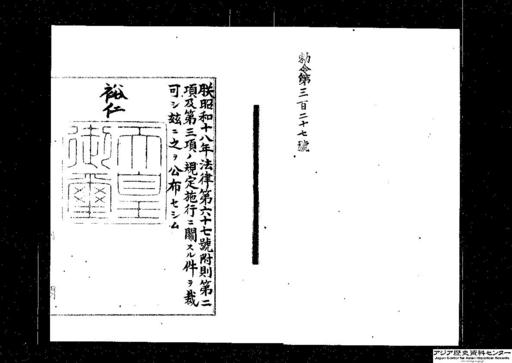 勅令第三百二十七號
朕昭和十八年法律第六十七號附則第二
項及第三項ノ規定施行ニ關スル件ヲ裁
可シ茲ニ之ヲ公布セシム
裕仁
天皇
御璽
アジア歴史資料センター
Japan Center for Asian Historical Records